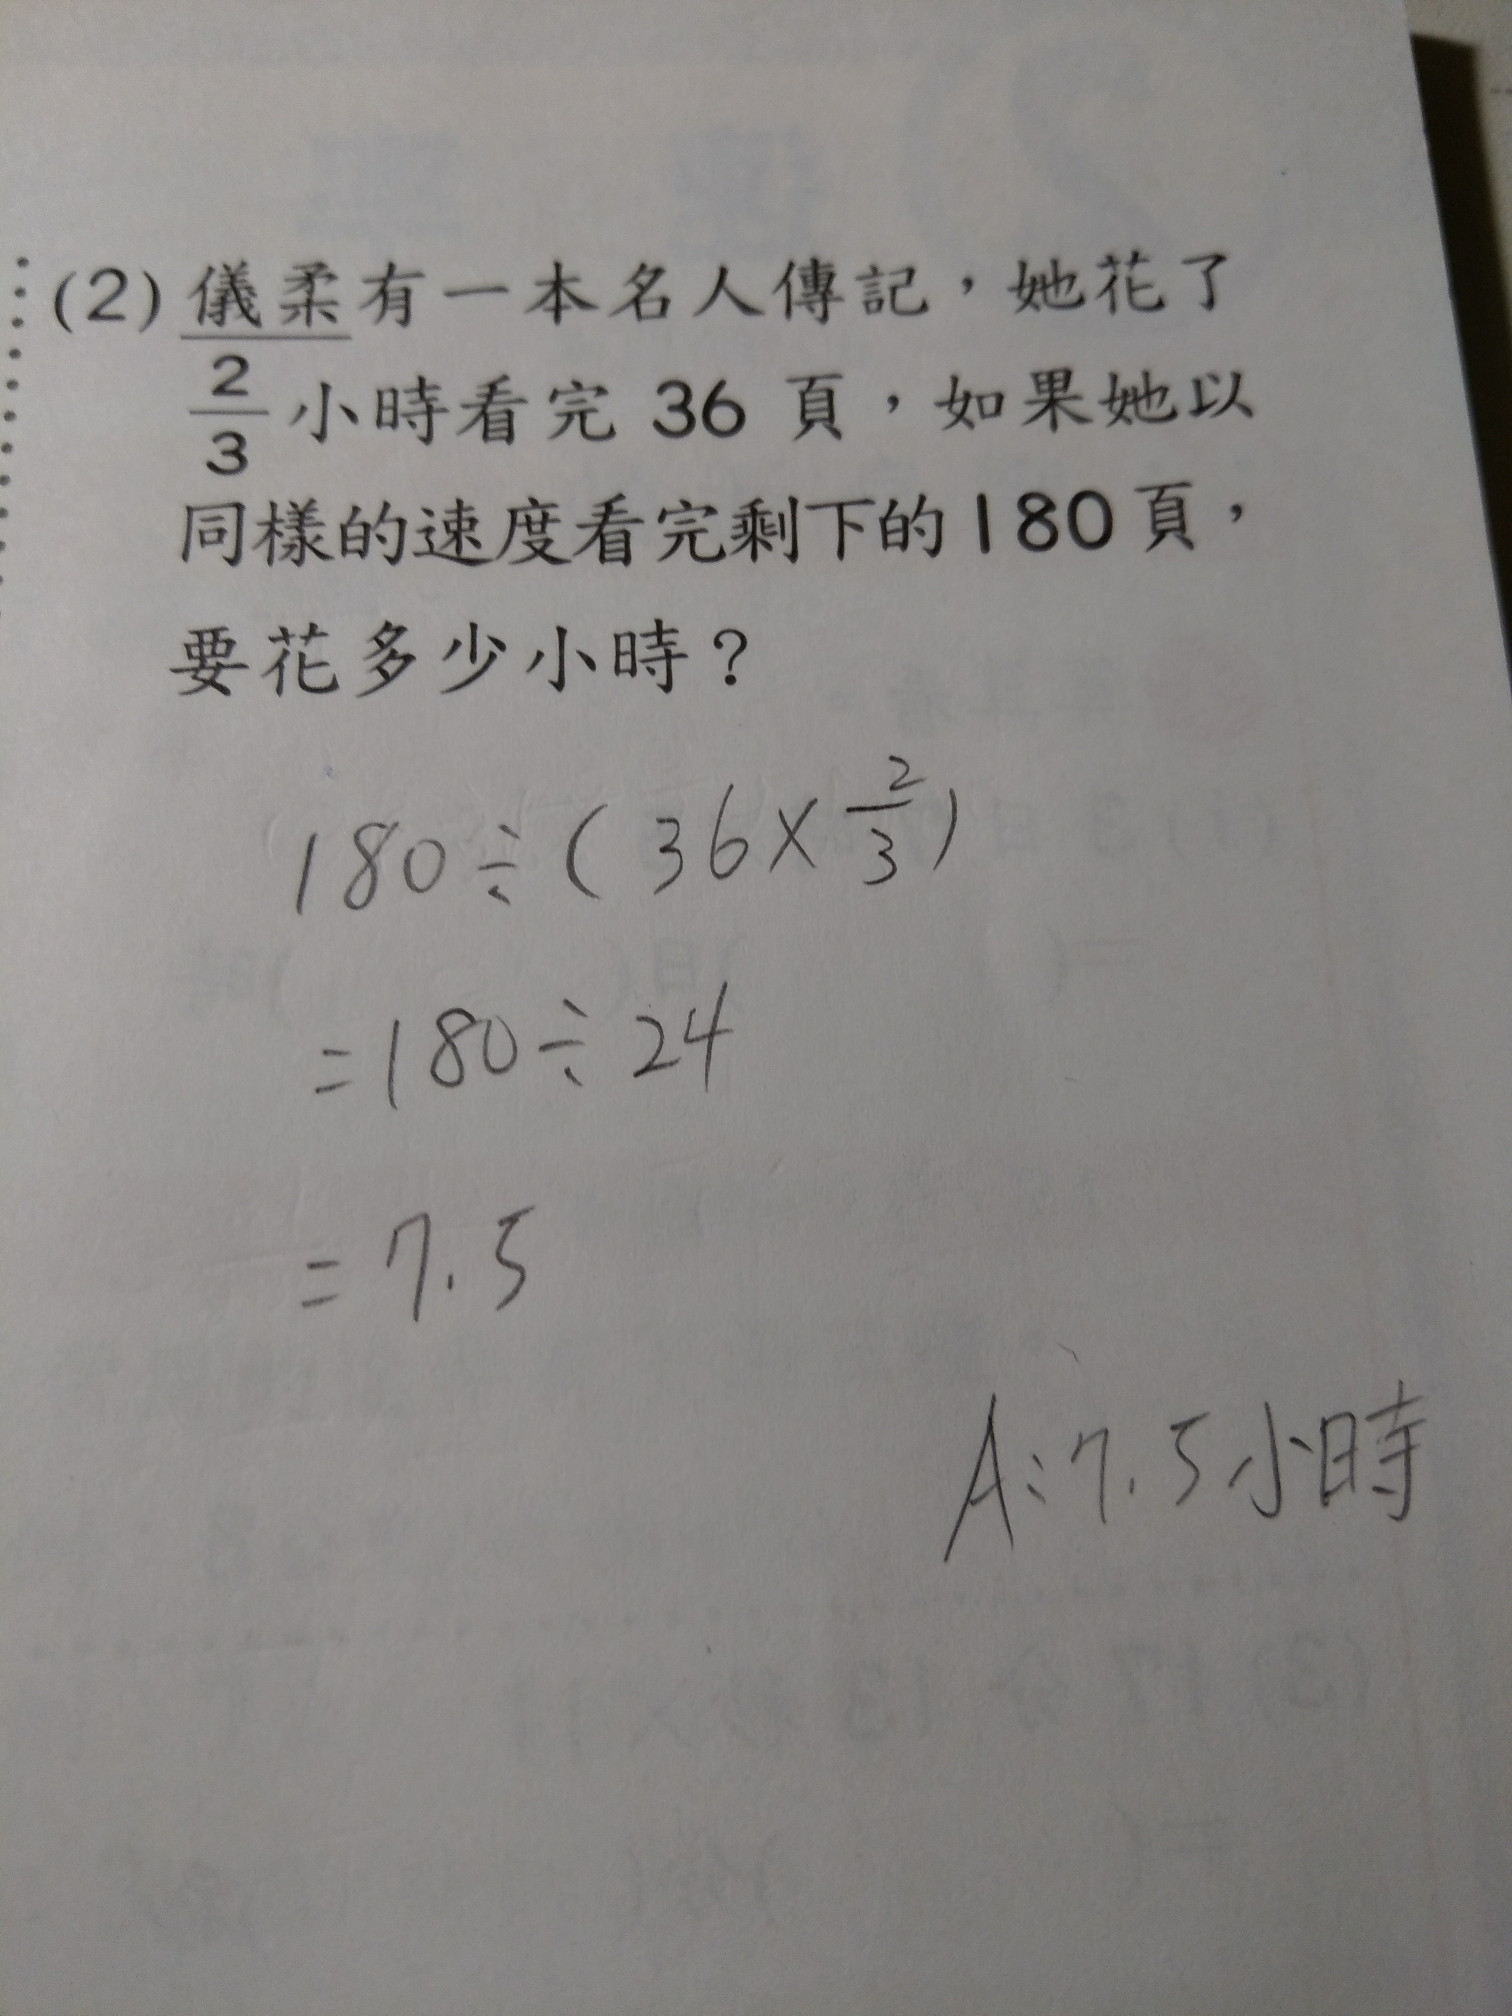 (2) 儀柔有一本名人傳記，她花了
2/3 小時看完 36 頁，如果她以
同樣的速度看完剩下的180頁，
要花多少小時？
180÷(36×2/3)
=180÷24
=7.5
A:7.5小時